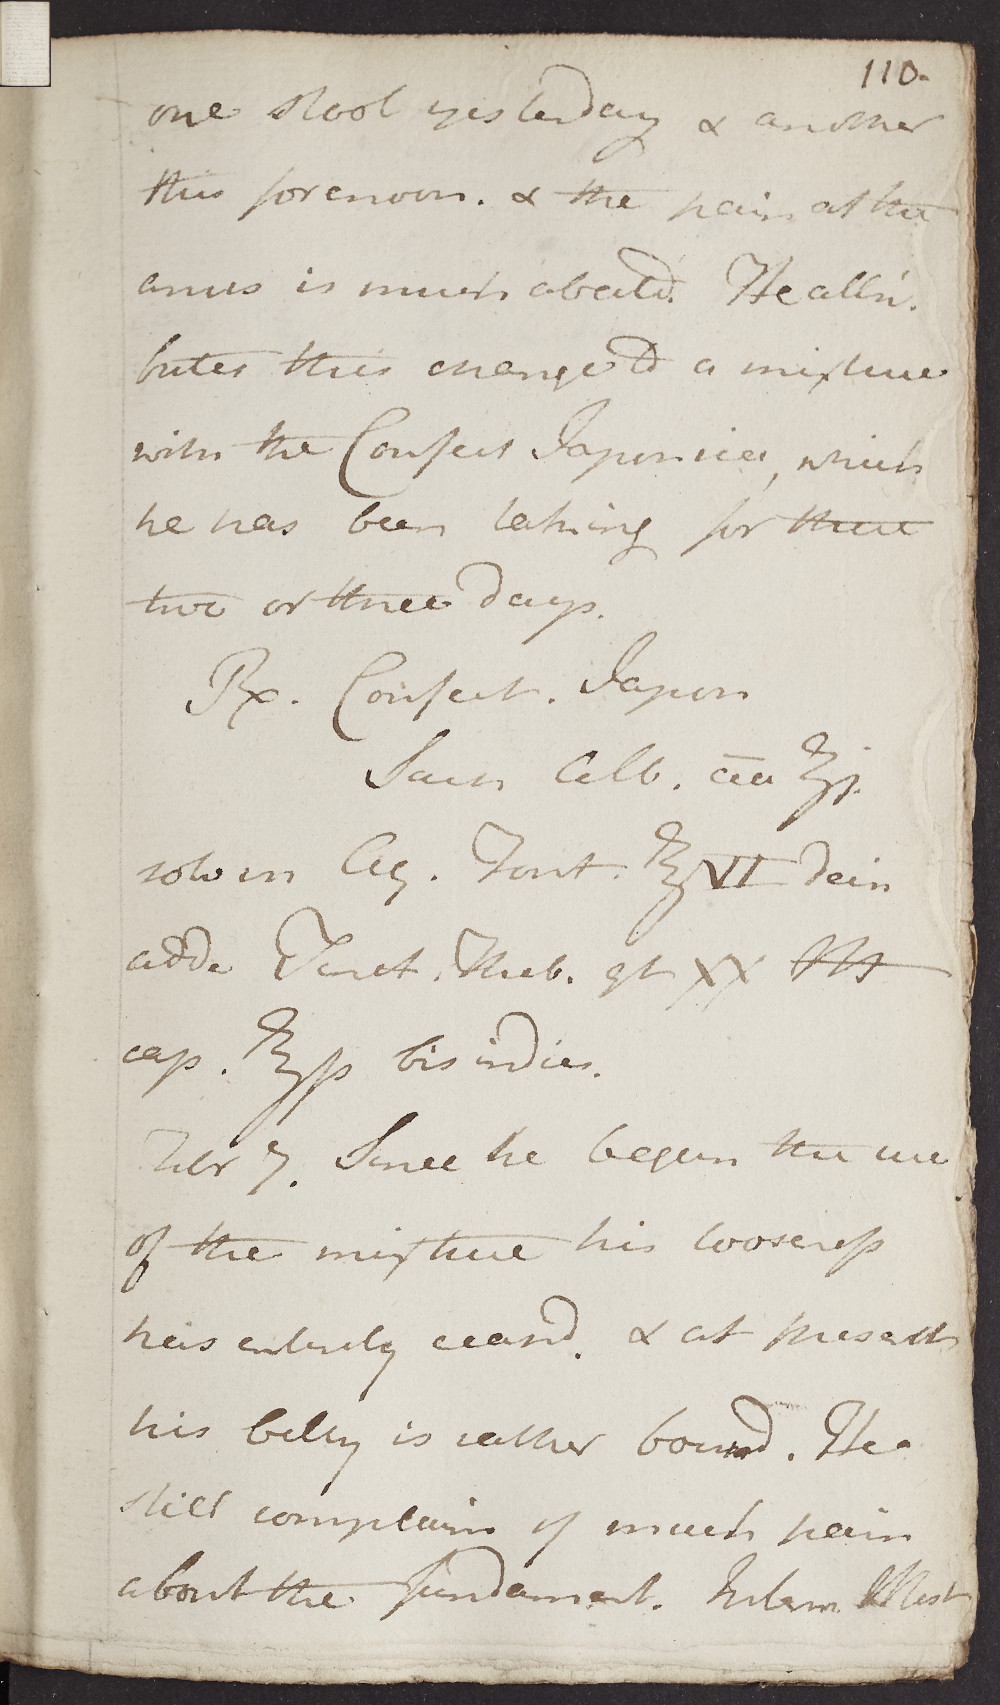 110.
one stool yesterday & another
this forenoon. & the pain at the
anus is much abated. He attri-
butes this change to a mixture
with the Confect Japonica, which
he has been taking for these
two or three days.
Rx. Confect. Japon
Sach Alb. āā ℥j.
solv in Aq. Font. ℥VI dein
adde Tinct. Theb. gt XX
cap. ℥ſs bis indies.
Febr 7. Since he began the use
of the mixture his looseness
has entirely ceasd. & at present
his belly is rather bound. He
still complains of much pain
about the fundament.